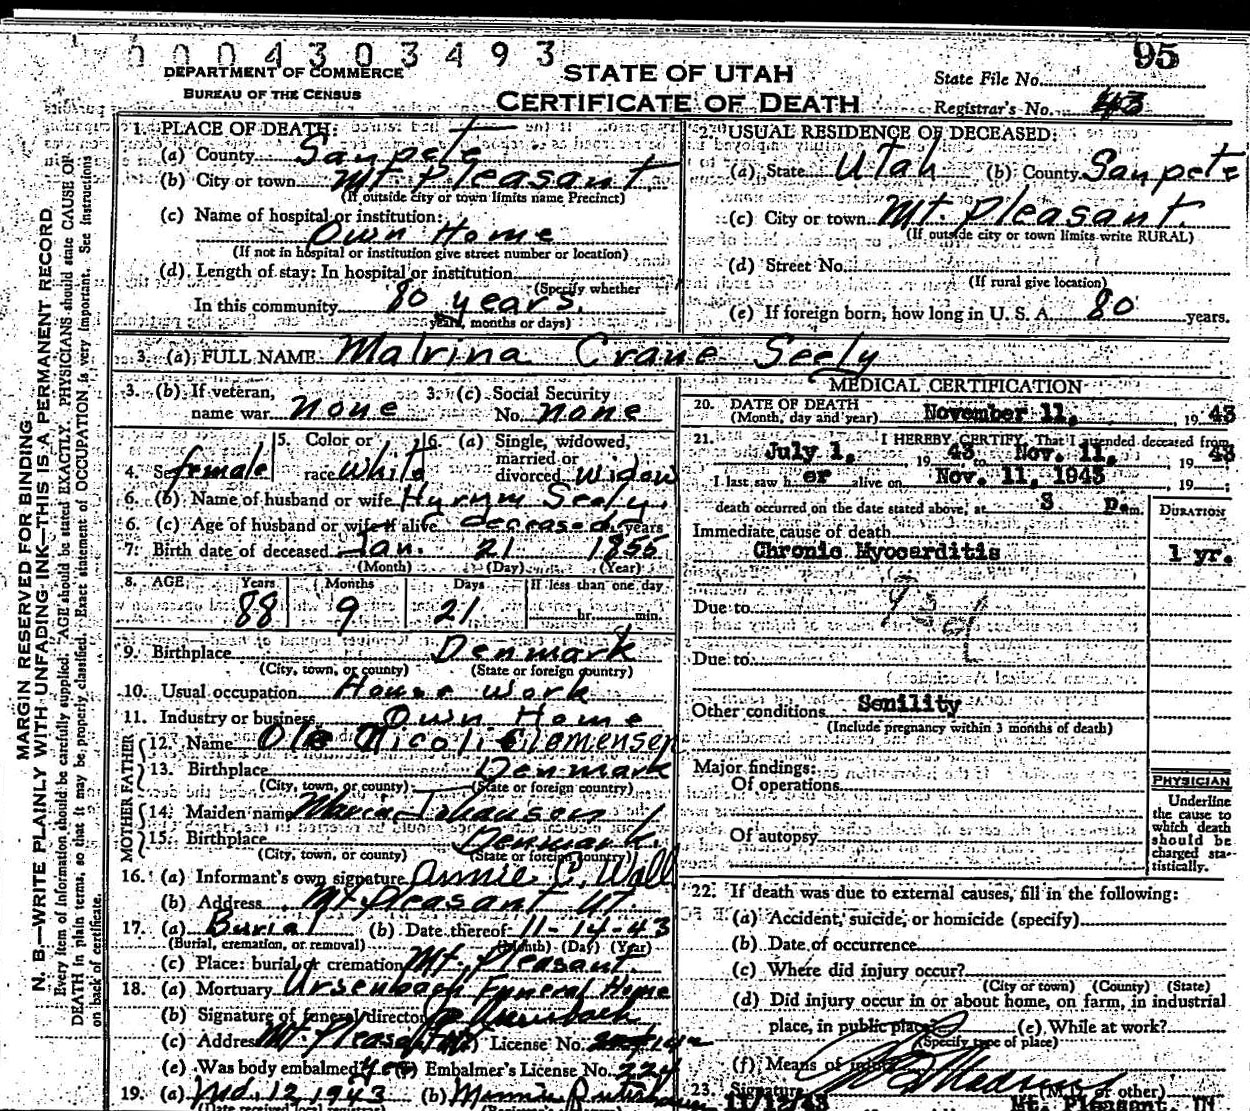 0 0 0 4 3 0 3 4 9 3
95
DEPARTMENT OF COMMERCE
BUREAU OF THE CENSUS
STATE OF UTAH
CERTIFICATE OF DEATH
State File No.
Registrar's No. 43
MARGIN RESERVED FOR BINDING
N. B.—WRITE PLAINLY WITH UNFADING INK—THIS IS A PERMANENT RECORD
Every item of information should be carefully supplied. AGE should be stated EXACTLY. PHYSICIANS should state CAUSE OF
DEATH in plain terms, so that it may be properly classified. Exact statement of OCCUPATION is very important. See instructions
on back of certificate.
1. PLACE OF DEATH:
(a) County Sanpete
(b) City or town Mt Pleasant
(If outside city or town limits name Precinct)
(c) Name of hospital or institution:
Own Home
(If not in hospital or institution give street number or location)
(d) Length of stay: In hospital or institution
(Specify whether
In this community 80 years.
years, months or days)
2. USUAL RESIDENCE OF DECEASED:
(a) State Utah (b) County Sanpete
(c) City or town Mt. Pleasant.
(If outside city or town limits write RURAL)
(d) Street No.
(If rural give location)
(e) If foreign born, how long in U. S. A. 80 years.
3. (a) FULL NAME Malrina Crane Seely
3. (b) If veteran, name war none
3. (c) Social Security No. none
4. Sex female
5. Color or race white
6. (a) Single, widowed, married or divorced widow
6. (b) Name of husband or wife Hyrum Seely.
6. (c) Age of husband or wife if alive deceased years
7. Birth date of deceased Jan. 21 1855
(Month) (Day) (Year)
8. AGE Years Months Days If less than one day
88 9 21 hr. min.
9. Birthplace Denmark
(City, town, or county) (State or foreign country)
10. Usual occupation House work
11. Industry or business Own Home
FATHER
12. Name Ole Nicoli Clemensen
13. Birthplace Denmark
(City, town, or county) (State or foreign country)
MOTHER
14. Maiden name Maria
15. Birthplace Denmark.
(City, town, or county) (State or foreign country)
16. (a) Informant's own signature Annie C. Wall
(b) Address Mt Pleasant Ut.
17. (a) Burial (b) Date thereof 11-14-43
(Burial, cremation, or removal) (Month) (Day) (Year)
(c) Place: burial or cremation Mt. Pleasant.
18. (a) Mortuary Ursenbach Funeral Home
(b) Signature of funeral director
(c) Address Mt. Pleasant License No.
(e) Was body embalmed? yes Embalmer's License No. 224
19. (a) 12, 1943 (b)
(Date received local registrar)
MEDICAL CERTIFICATION
20. DATE OF DEATH
(Month, day and year) November 11, 19 43
21. I HEREBY CERTIFY, That I attended deceased from
July 1, 19 43 to Nov. 11, 19 43
I last saw h er alive on Nov. 11, 1943 19
death occurred on the date stated above, at 3 P. m.
DURATION
Immediate cause of death
Chronic Myocarditis 1 yr.
Due to
Due to
Other conditions Senility
(Include pregnancy within 3 months of death)
Major findings:
Of operations
Of autopsy
PHYSICIAN
Underline
the cause to
which death
should be
charged sta-
tistically.
22. If death was due to external causes, fill in the following:
(a) Accident, suicide, or homicide (specify)
(b) Date of occurrence
(c) Where did injury occur?
(City or town) (County) (State)
(d) Did injury occur in or about home, on farm, in industrial
place, in public place? (e) While at work?
(Specify type of place)
(f) Means of injury
23. Signature (M. D. or other)
11/12/43 Mt. Pleasant, Ut